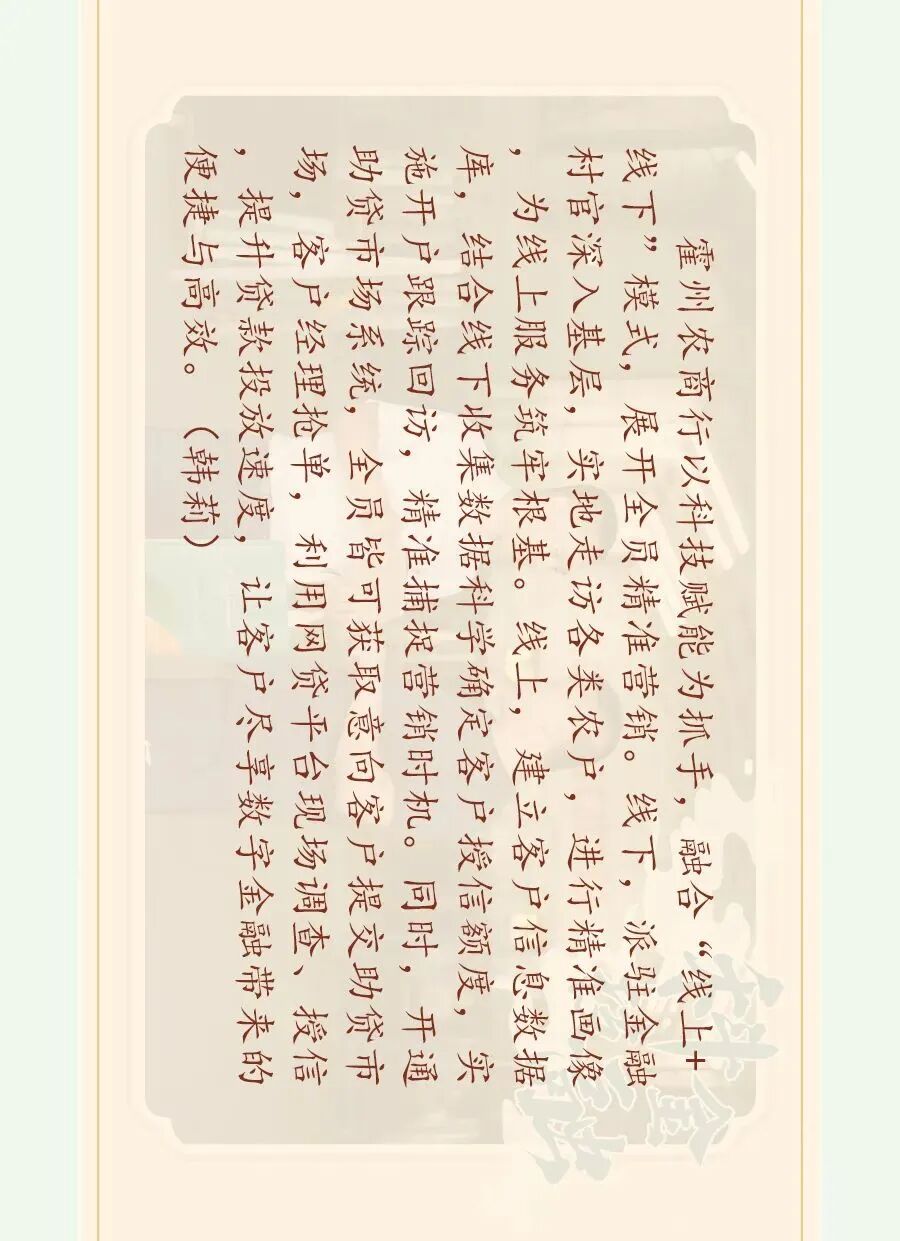 霍州农商行以科技赋能为抓手，融合“线上+
线下”模式，展开全员精准营销。线下，派驻金融
村官深入基层，实地走访各类农户，进行精准画像
，为线上服务筑牢根基。线上，建立客户信息数据
库，结合线下收集数据科学确定客户授信额度，实
施开户跟踪回访，精准捕捉营销时机。同时，开通
助贷市场系统，全员皆可获取意向客户提交助贷市
场，客户经理抢单，利用网贷平台现场调查、授信
，提升贷款投放速度，让客户尽享数字金融带来的
便捷与高效。（韩莉）